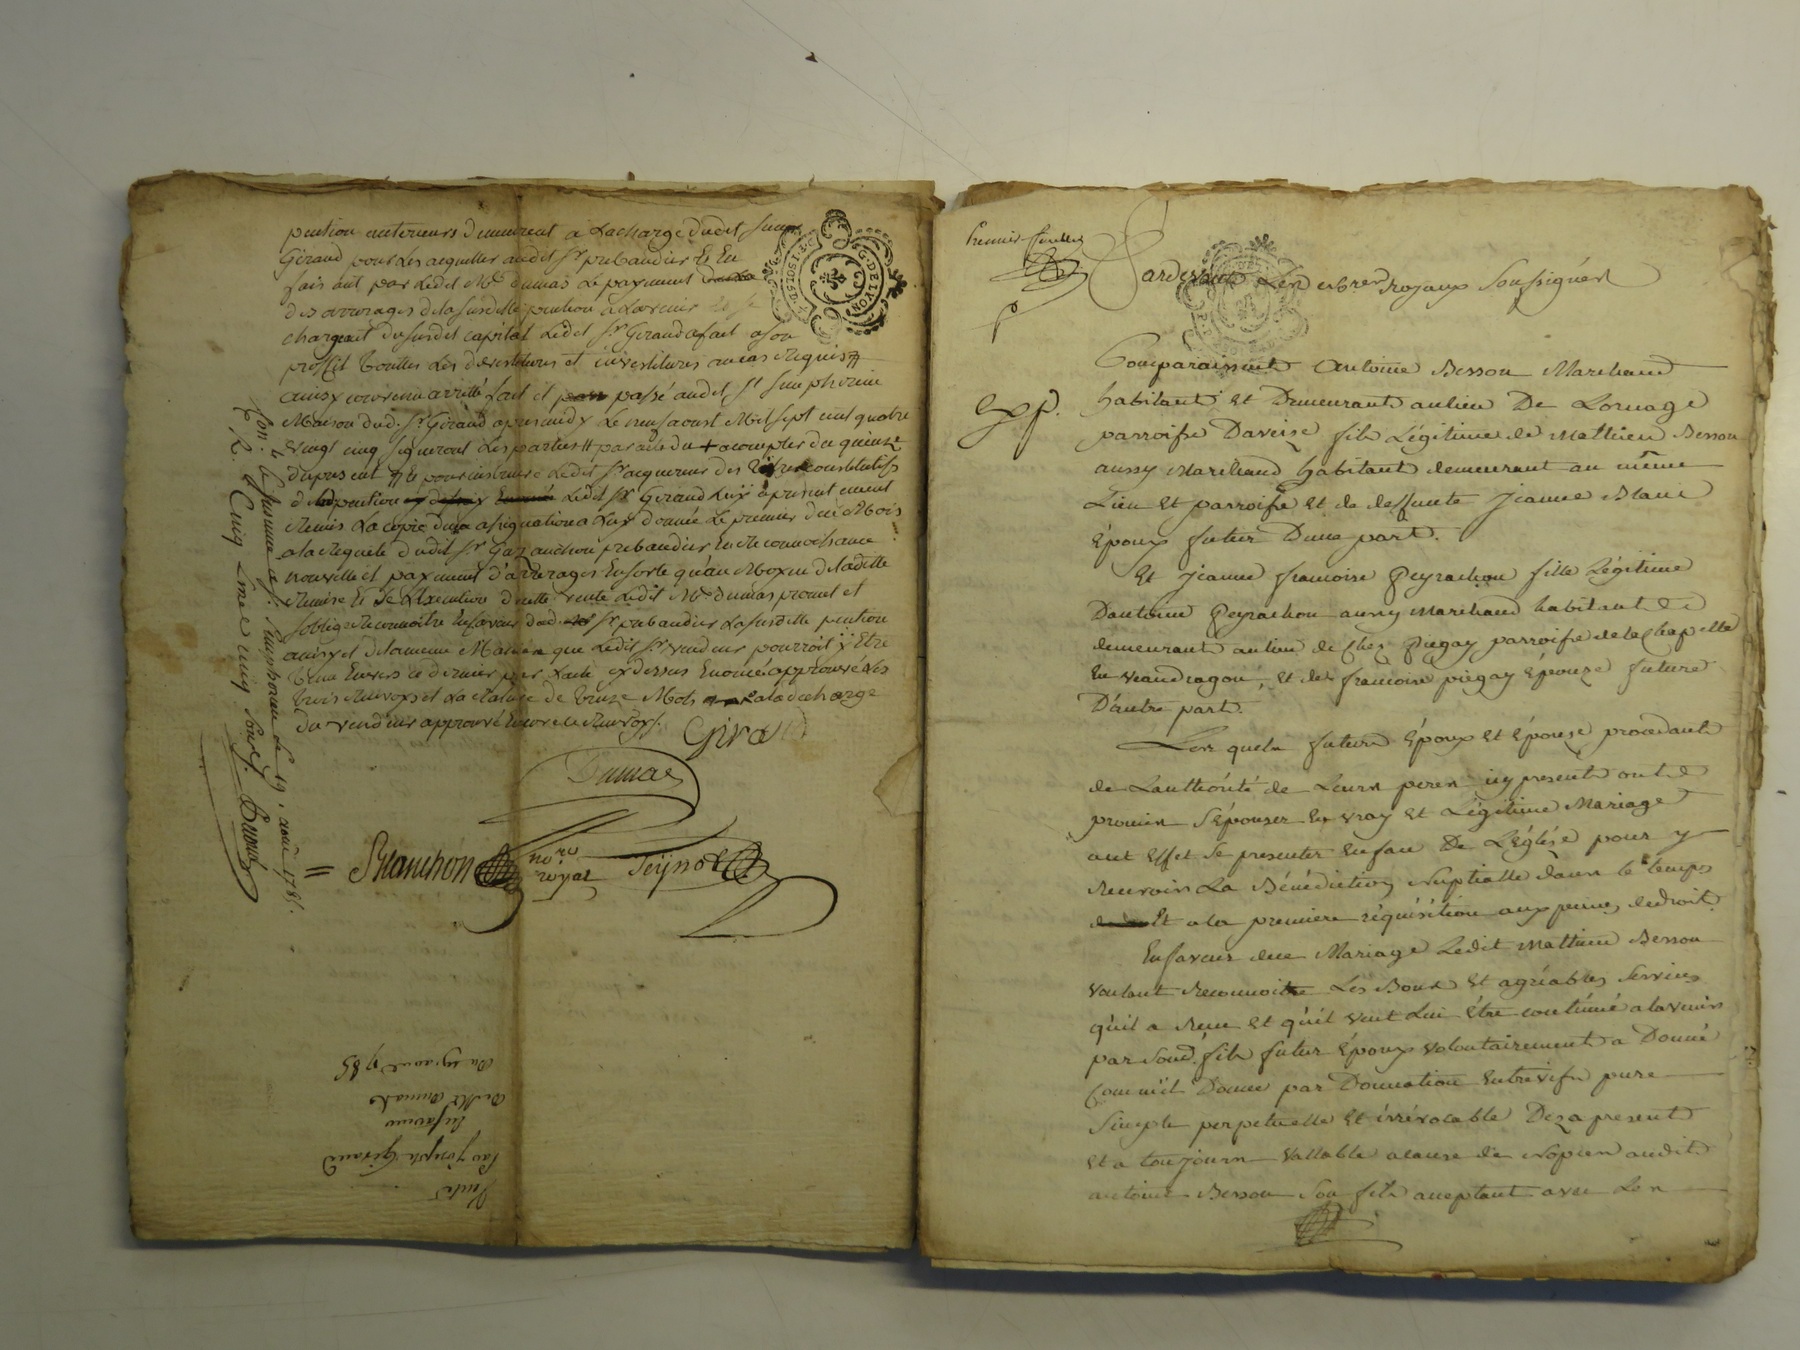 pention anterieurs demeurent a la charge dudit sieur
Giraud pour les acquitter audit Sr prebandier Et En
faisant par ledit Me dumas le payement
des arrerages de la susditte pention a l'avenir
chargeant du susdit capital ledit Sr Giraud a fait a son
proffit touttes les devestitures et investitures au cas requis
ainsy convenu arretté fait et passé audit St simphorien
Maison dud. Sr Giraud apres midy le neuf aoust Mil sept cent quatre
vingt cinq signeront les parties
du present pour instruire ledit Sr acquereur des titres constitutifs
de lad pention ledit Sr Giraud luy a presentement
Remis la copie d'une assignation a luy donnée le premier du Mois
a la requete dudit Sr prebandier En Reconnoissance
nouvelle et payement d'arrerages En sorte qu'au Moyen de laditte
Remise Et de l'Execution de cette vente ledit Me Dumas promet et
s'oblige Reconnoitre En faveur dud. Sr prebandier la susditte pention
ainsy et de la meme Maniere que ledit Sr vendeur pourroit y Etre
tenu Envers ce dernier par l'acte cy dessus Enoncé approuvé les
trois Renvoys et la Rature de treize Mots a la decharge
du vendeur approuvé Encore le Renvoy.
Girad
Dumas
= Blanchon nore royal Teynol
Con. le a St Simphorien le 19. août 1785.
R. Cinq
Vente
Par Joseph Giraud
En faveur
de Me Dumas
Du 9 aout 1785
Premier feuillet
Pardevant Les nores royaux Soussignés
Comparaissent Antoine Besson Marchand
Exp.
habitant Et Demeurant au lieu De Lornage
parroisse Daveise fils Légitime de Mathieu Besson
aussy Marchand habitant demeurant au même
Lieu Et parroisse Et de deffunte Jeanne Blanc
Époux futur D'une part.
Et Jeanne francoise Peyrachon fille Légitime
D'antoine Peyrachon aussy Marchand habitant Et
demeurant au lieu de chez Piegay parroisse de la chapelle
En vaudragon, Et de francoise piegay Épouze future
D'autre part.
Lesquels futurs Époux Et Épouse procedants
de L'authorité de Leurs peres icy presents ont
promis S'épouser En vray Et Légitime Mariage
aut Effet Se presenter En face De L'église pour y
Recevoir La Bénédiction Nuptialle dans le temps
Et a la premiere réquisition aux peines de droit.
En faveur duu Mariage Ledit Mathieu Besson
voulant Reconnoitre Les Bons Et agréables Services
qu'il a Reçu Et qu'il veut Lui être continué a lavenir
par Soud. fils futur Époux volontairement a Donné
Comme il Donne par Donnation Entrevifs pure
Simple perpetuelle Et irrévocable Deza present
Et a toujours vallable a cause de Nopces audit
antoine Besson Son fils acceptant avec Les